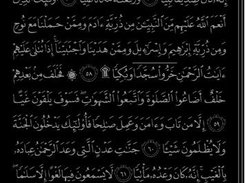 أَنْعَمَ اللَّهُ عَلَيْهِم مِّنَ النَّبِيِّـۧنَ مِن ذُرِّيَّةِ ءَادَمَ وَمِمَّنْ حَمَلْنَا مَعَ نُوحٍ
وَمِن ذُرِّيَّةِ إِبْرَٰهِيمَ وَإِسْرَٰٓءِيلَ وَمِمَّنْ هَدَيْنَا وَاجْتَبَيْنَآ إِذَا تُتْلَىٰ عَلَيْهِمْ
ءَايَٰتُ الرَّحْمَٰنِ خَرُّوا۟ سُجَّدًا وَبُكِيًّا ۩ ٥٨ فَخَلَفَ مِنۢ بَعْدِهِمْ
خَلْفٌ أَضَاعُوا۟ الصَّلَوٰةَ وَاتَّبَعُوا۟ الشَّهَوَٰتِ فَسَوْفَ يَلْقَوْنَ غَيًّا
٥٩ إِلَّا مَن تَابَ وَءَامَنَ وَعَمِلَ صَٰلِحًا فَأُو۟لَٰٓئِكَ يَدْخُلُونَ الْجَنَّةَ
وَلَا يُظْلَمُونَ شَيْـًٔا ٦٠ جَنَّٰتِ عَدْنٍ الَّتِى وَعَدَ الرَّحْمَٰنُ عِبَادَهُۥ
بِالْغَيْبِ إِنَّهُۥ كَانَ وَعْدُهُۥ مَأْتِيًّا ٦١ لَّا يَسْمَعُونَ فِيهَا لَغْوًا إِلَّا سَلَٰمًا